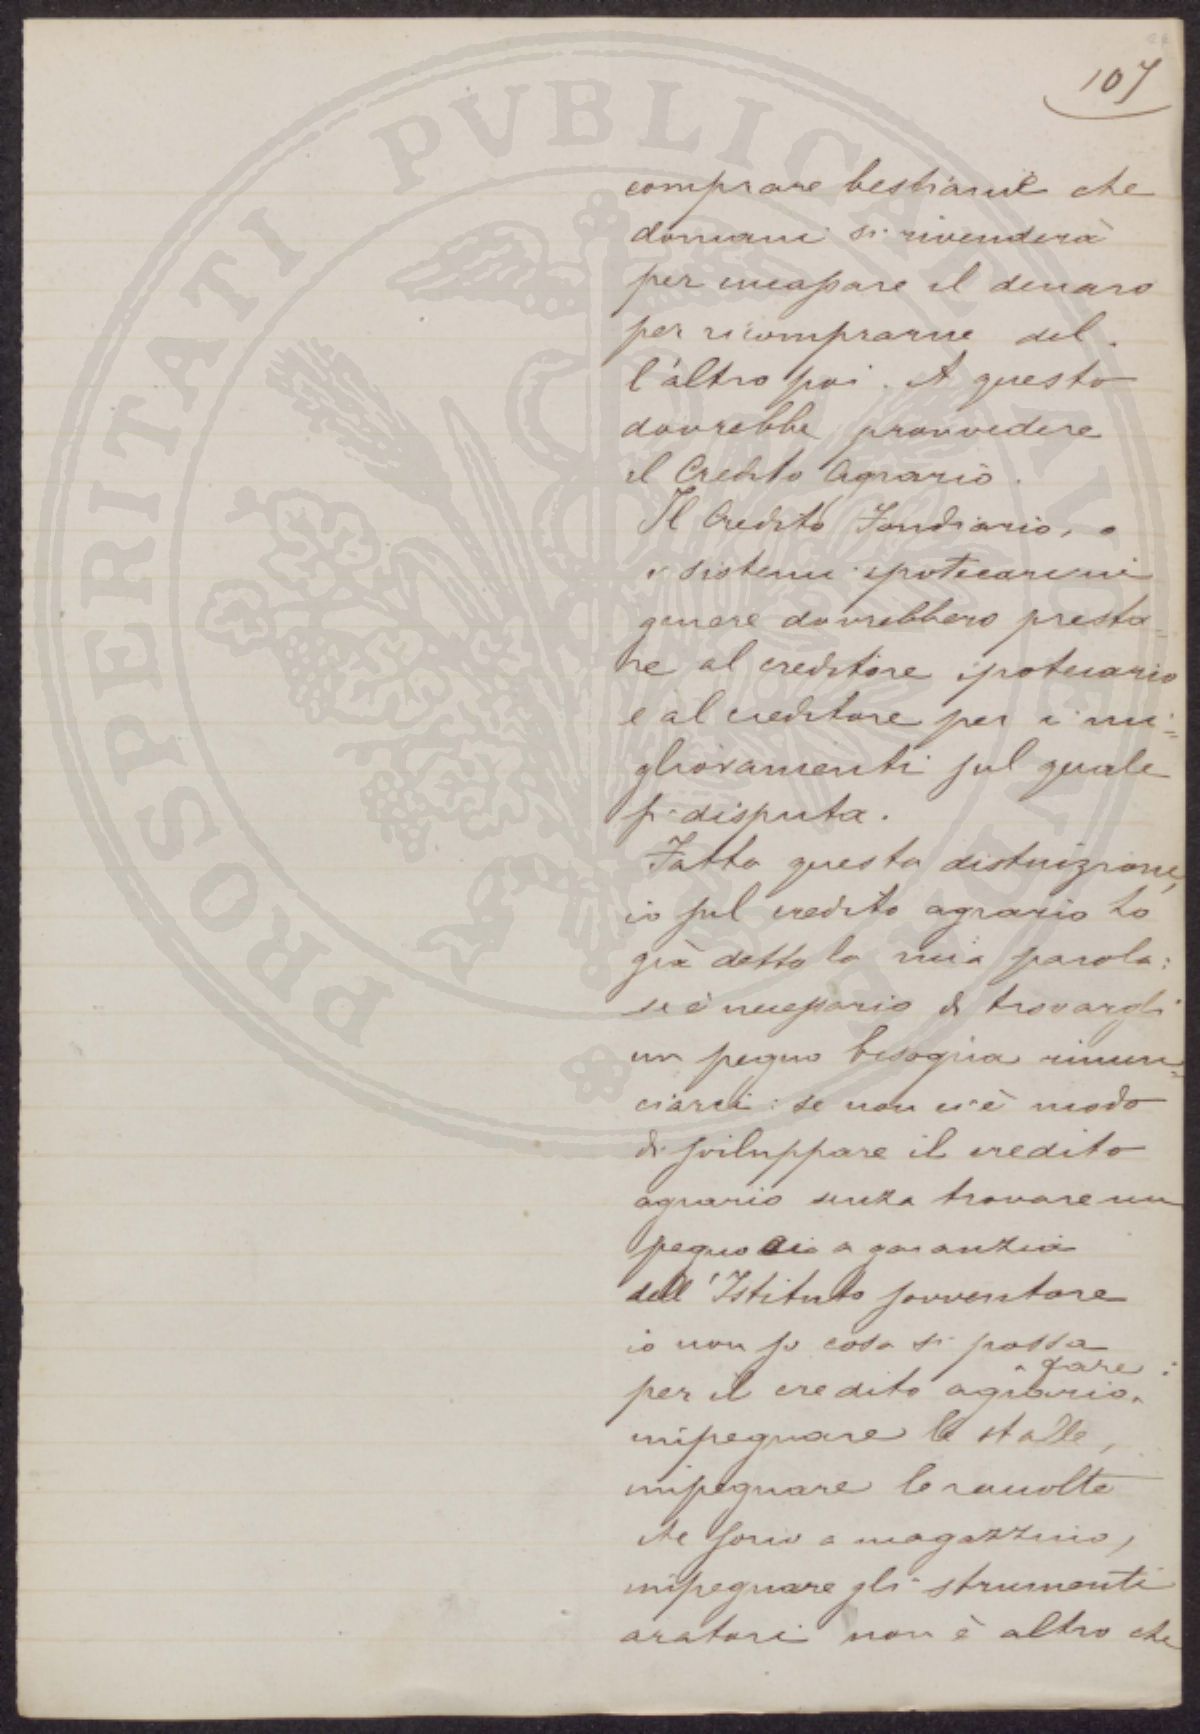 107
comprare bestiame che
domani si rivenderà
per incassare il denaro
per ricomprarne del-
l'altro poi. A questo
dovrebbe provvedere
il Credito Agrario.
Il Credito Fondiario, o
i sistemi ipotecari in
genere dovrebbero presta=
re al creditore ipotecario
e al creditore per i mi=
glioramenti sul quale
si disputa.
Fatta questa distinzione,
io sul credito agrario ho
già detto la mia parola:
se è necessario di trovargli
un pegno bisogna rinun=
ciarvi: se non vi è modo
di sviluppare il credito
agrario senza trovare un
pegno a garanzia
dell'Istituto sovventore
io non so cosa si possa
fare
per il credito agrario.
impegnare le stalle,
impegnare le raccolte
che sono a magazzino,
impegnare gli strumenti
aratori non è altro che
PROSPERITATI PVBLICAE